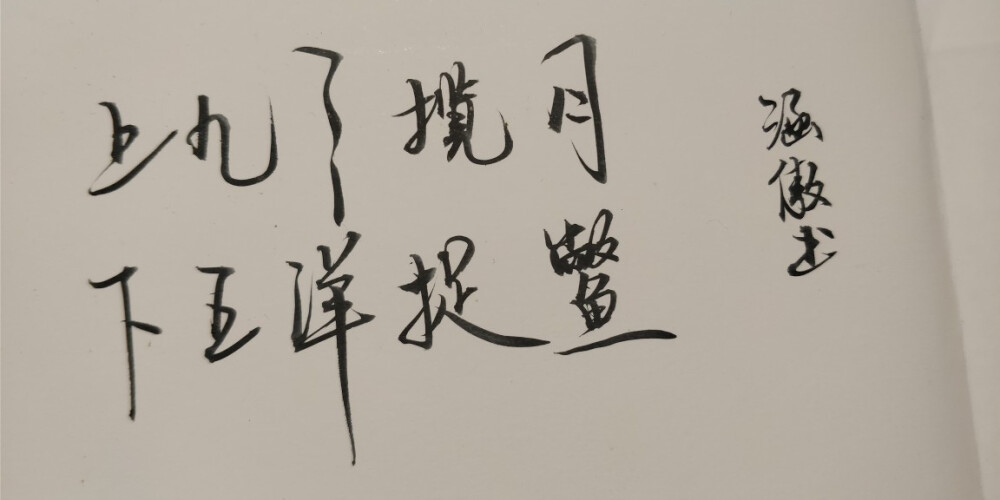 上九天揽月
下五洋捉鳖
涵傲书